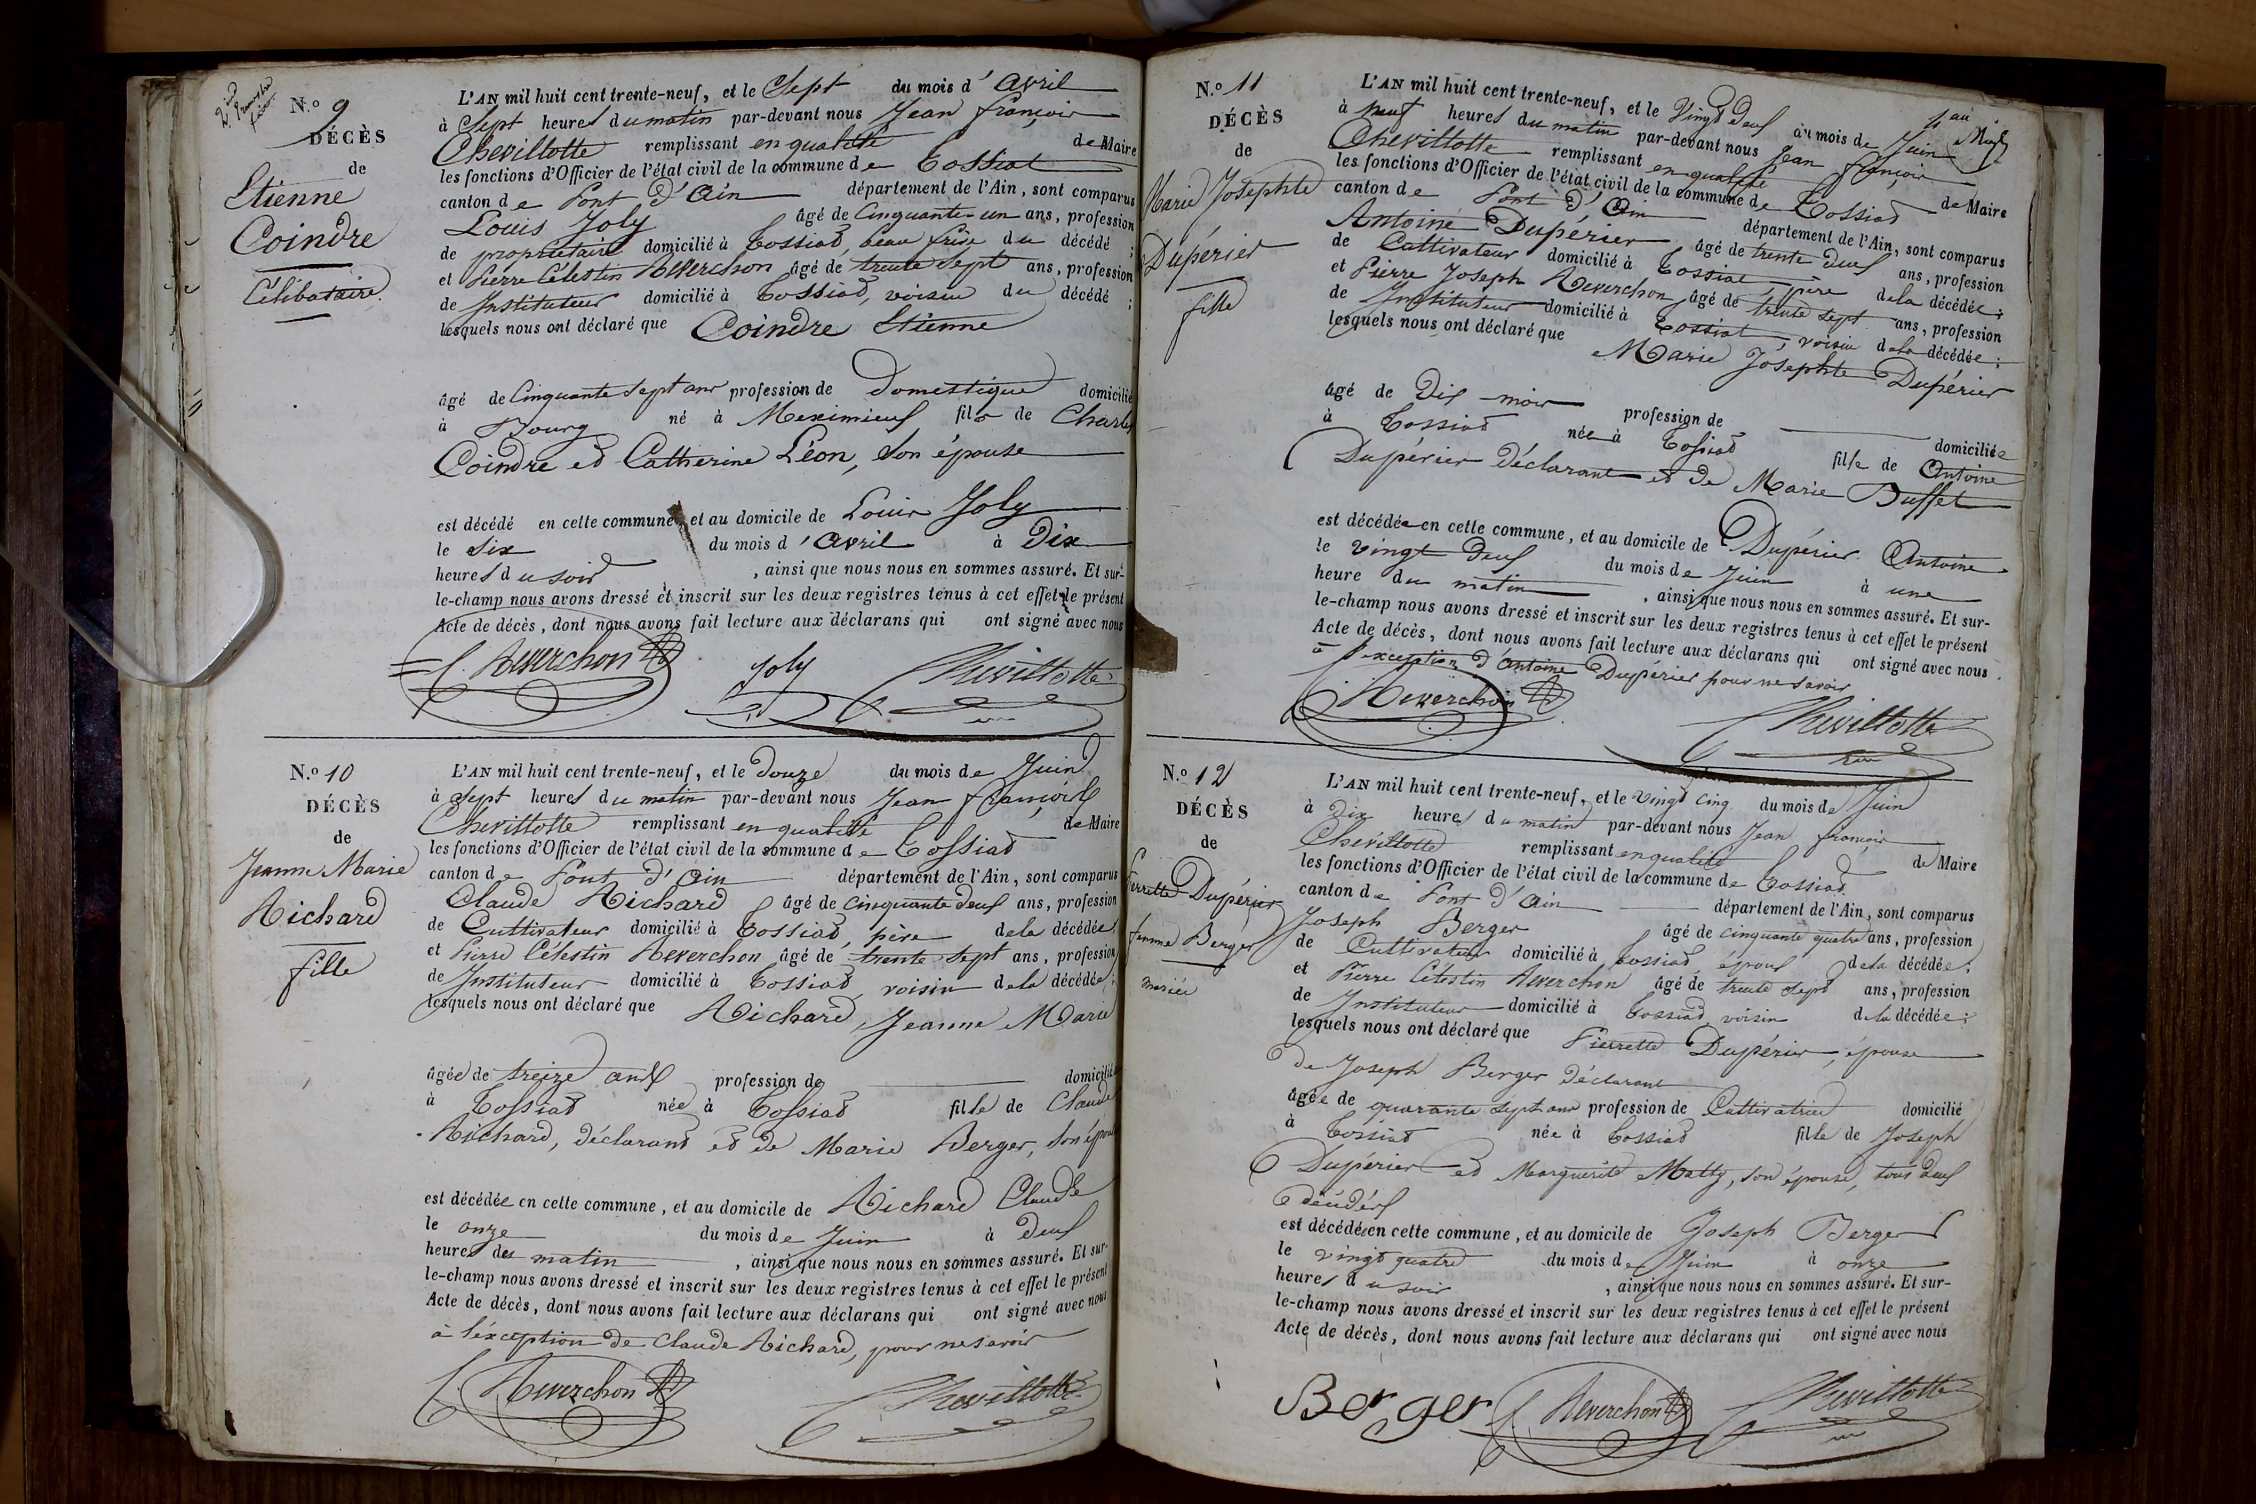 N.o 9
DÉCÈS
de
Etienne
Coindre
Célibataire.
L'AN mil huit cent trente-neuf, et le Sept du mois d'avril
à Sept heures du matin par-devant nous Jean françois
Chevillotte remplissant en qualité de Maire
les fonctions d'Officier de l'état civil de la commune de Tossiat
canton de Pont d'ain département de l'Ain, sont comparus
Louis Joly âgé de Cinquante-un ans, profession
de propriétaire domicilié à Tossiat, beau frère du décédé ;
et Pierre Célestin Reverchon âgé de trente sept ans, profession
de Instituteur domicilié à Tossiat, voisin du décédé ;
lesquels nous ont déclaré que Coindre Etienne
âgé de Cinquante sept ans profession de Domestique domicilié
à Bourg né à Meximieux fils de Charles
Coindre et Catherine Léon, son épouse
est décédé en cette commune, et au domicile de Louis Joly
le six du mois d'avril à Dix
heures du soir , ainsi que nous nous en sommes assuré. Et sur-
le-champ nous avons dressé et inscrit sur les deux registres tenus à cet effet le présent
Acte de décès, dont nous avons fait lecture aux déclarans qui ont signé avec nous
Reverchon Joly Chevillotte
N.o 10
DÉCÈS
de
Jeanne Marie
Richard
fille
L'AN mil huit cent trente-neuf, et le douze du mois de Juin
à Sept heures du matin par-devant nous Jean françois
Chevillotte remplissant en qualité de Maire
les fonctions d'Officier de l'état civil de la commune de Tossiat
canton de Pont d'ain département de l'Ain, sont comparus
Claude Richard âgé de cinquante deux ans, profession
de Cultivateur domicilié à Tossiat, père de la décédée ;
et Pierre Célestin Reverchon âgé de trente sept ans, profession
de Instituteur domicilié à Tossiat voisin de la décédée ;
lesquels nous ont déclaré que Richard, Jeanne Marie
âgée de treize ans profession de domicilié
à Tossiat née à Tossiat fille de Claude
Richard, déclarant et de Marie Berger, son épouse
est décédée en cette commune, et au domicile de Richard Claude
le onze du mois de Juin à deux
heures du matin , ainsi que nous nous en sommes assuré. Et sur-
le-champ nous avons dressé et inscrit sur les deux registres tenus à cet effet le présent
Acte de décès, dont nous avons fait lecture aux déclarans qui ont signé avec nous
à l'éxception de Claude Richard, pour ne savoir
Reverchon Chevillotte
N.o 11
DÉCÈS
de
Marie Josephte
Dupérier
fille
L'AN mil huit cent trente-neuf, et le Vingt deux du mois de Juin
à neuf heures du matin par-devant nous Jean françois
Chevillotte remplissant en qualité de Maire
les fonctions d'Officier de l'état civil de la commune de Tossiat
canton de Pont d'Ain département de l'Ain, sont comparus
Antoine Dupérier âgé de trente deux ans, profession
de Cultivateur domicilié à Tossiat père de la décédée ;
et Pierre Joseph Reverchon âgé de trente sept ans, profession
de Instituteur domicilié à Tossiat, voisin de la décédée ;
lesquels nous ont déclaré que Marie Josephte Dupérier
âgé de Dix mois profession de domiciliée
à Tossiat née à Tossiat fille de Antoine
Dupérier déclarant et de Marie Buffet
est décédée en cette commune, et au domicile de Dupérier Antoine
le vingt deux du mois de Juin à une
heure du matin , ainsi que nous nous en sommes assuré. Et sur-
le-champ nous avons dressé et inscrit sur les deux registres tenus à cet effet le présent
Acte de décès, dont nous avons fait lecture aux déclarans qui ont signé avec nous
à l'exception d'antoine Dupérier pour ne savoir
Reverchon Chevillotte
N.o 12
DÉCÈS
de
Pierrette Dupérier
femme Berger
mariée
L'AN mil huit cent trente-neuf, et le vingt cinq du mois de Juin
à Dix heures du matin par-devant nous Jean françois
Chevillotte remplissant en qualité de Maire
les fonctions d'Officier de l'état civil de la commune de Tossiat
canton de Pont d'ain département de l'Ain, sont comparus
Joseph Berger âgé de cinquante quatre ans, profession
de Cultivateur domicilié à Tossiat époux de la décédée ;
et Pierre Célestin Reverchon âgé de trente sept ans, profession
de Instituteur domicilié à Tossiat voisin de la décédée ;
lesquels nous ont déclaré que Pierrette Dupérier, épouse
de Joseph Berger déclarant
âgée de quarante sept ans profession de Cultivatrice domicilié
à Tossiat née à Tossiat fille de Joseph
Dupérier et Marguerite Matty, son épouse, tous deux
décédés
est décédée en cette commune, et au domicile de Joseph Berger
le vingt quatre du mois de Juin à onze
heures du soir , ainsi que nous nous en sommes assuré. Et sur-
le-champ nous avons dressé et inscrit sur les deux registres tenus à cet effet le présent
Acte de décès, dont nous avons fait lecture aux déclarans qui ont signé avec nous
Berger Reverchon Chevillotte